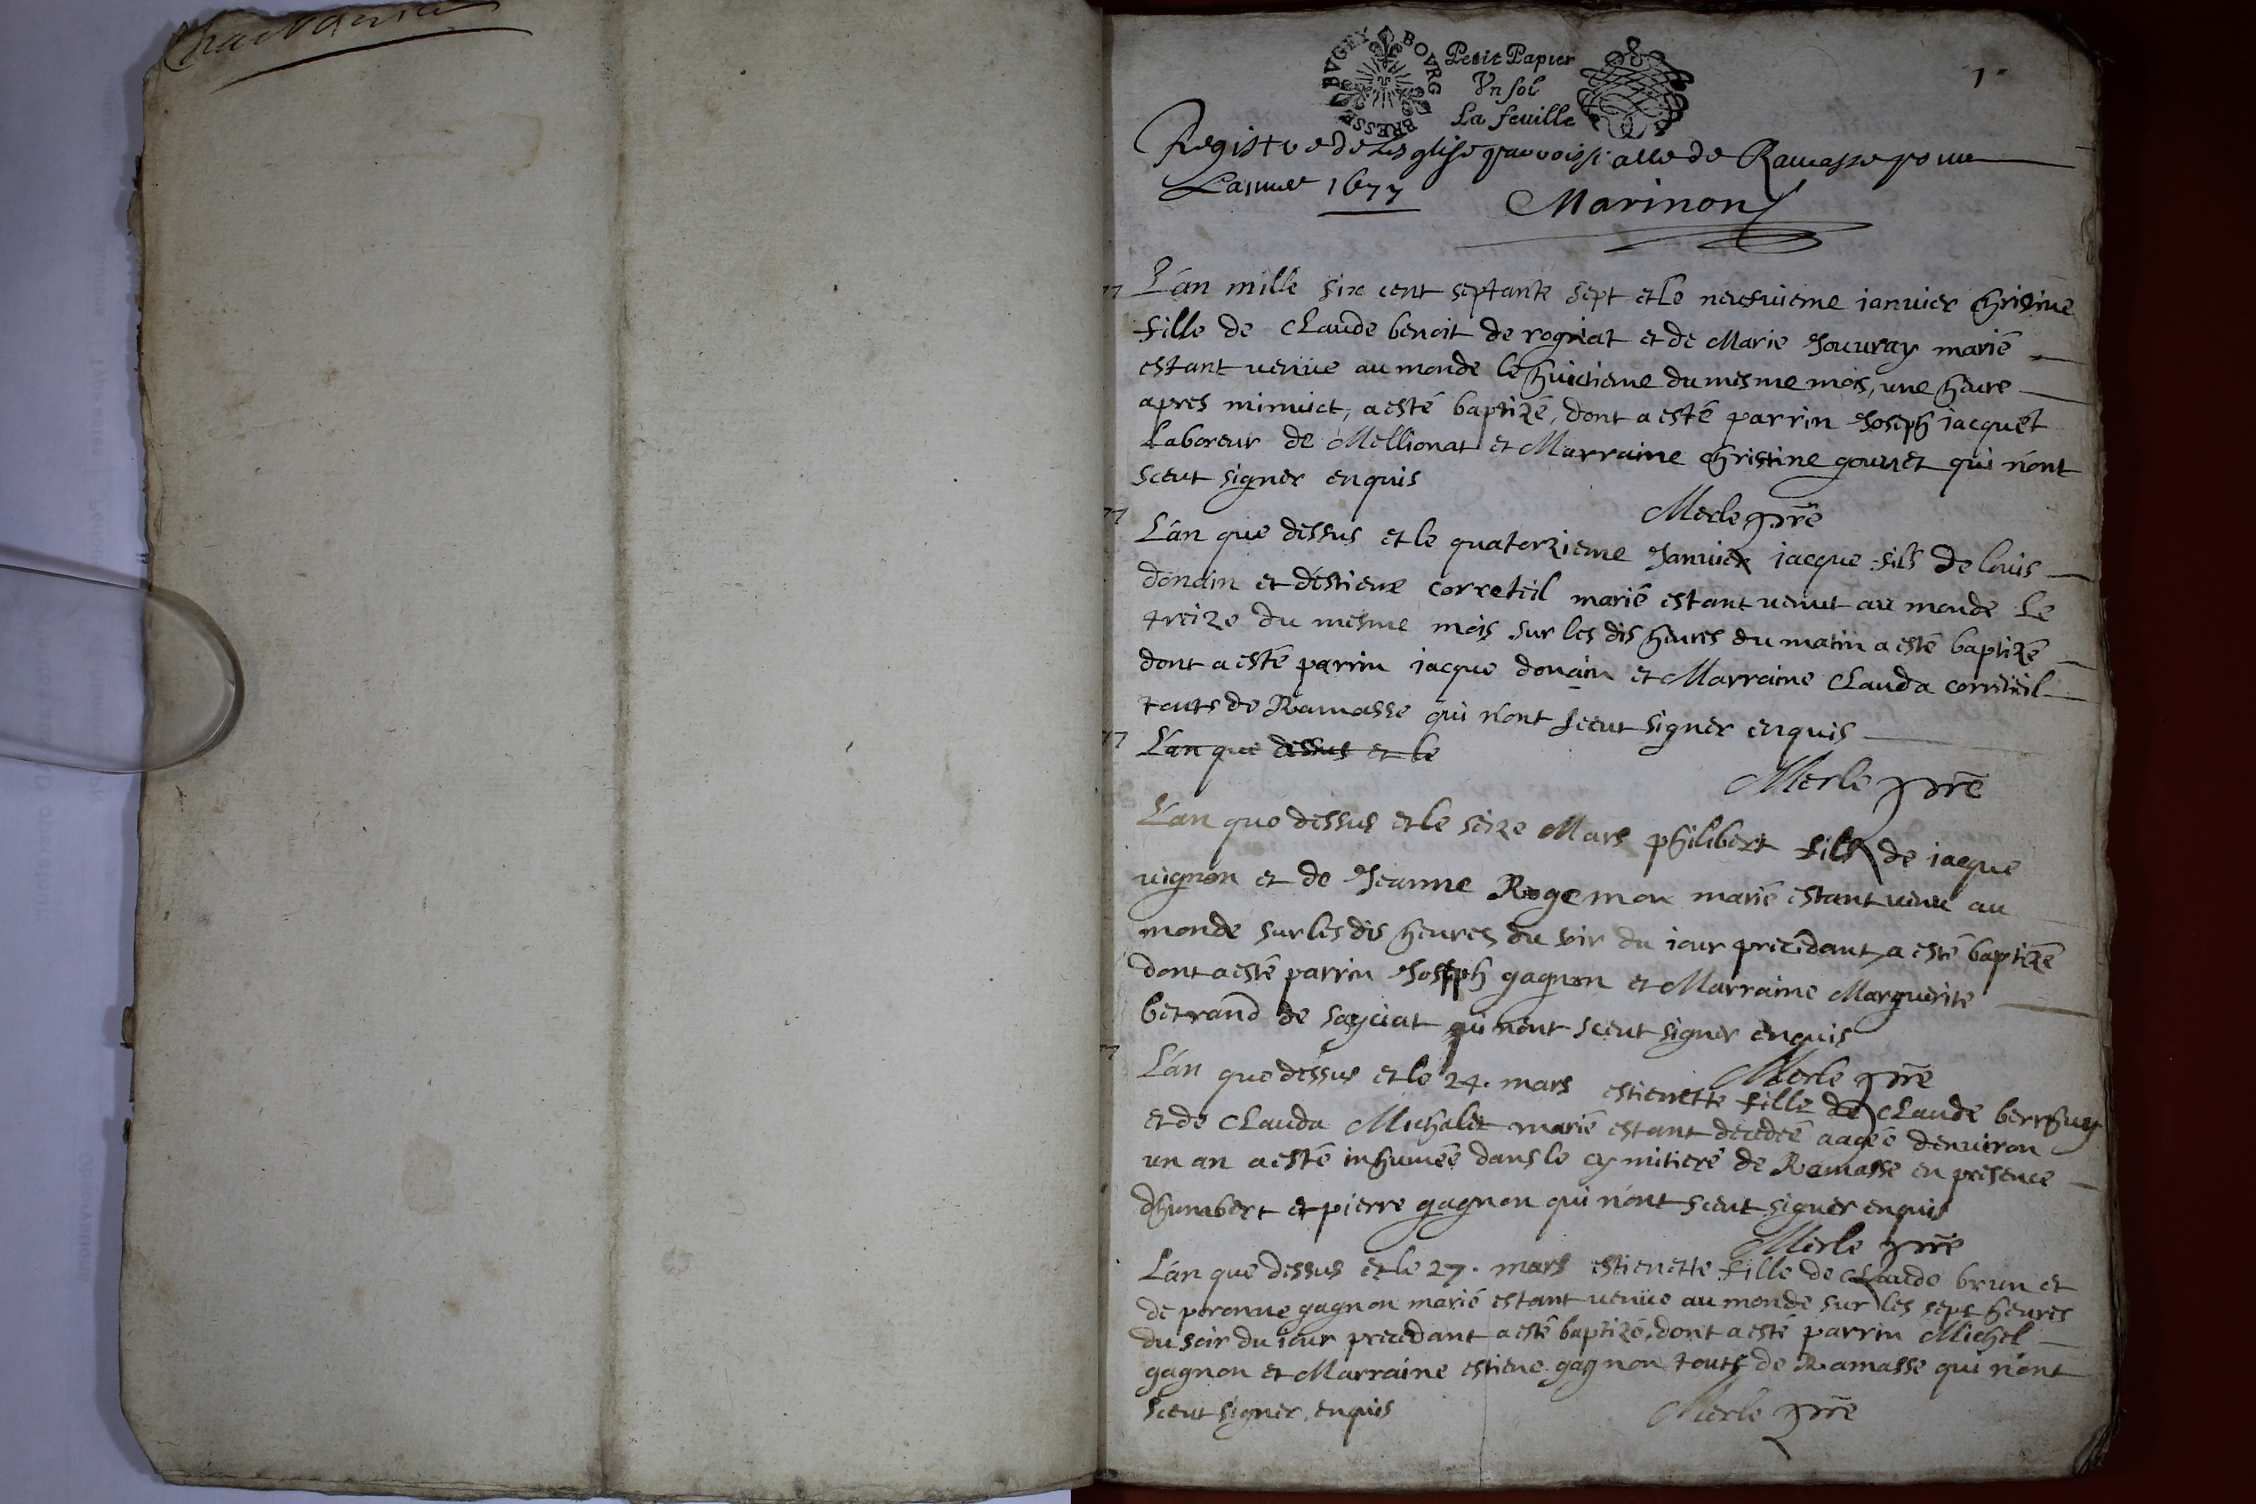 BVGEY BOVRG BRESSE
Petit Papier
Vn sol
La feuille
1.
Registre de Lesglise parroissialle de Ramasse pour
Lannee 1677
Marinon
L'an mille six cent septante sept et le neufuieme ianvier christine
fille de Claude benoit de rogneat et de Marie Jouvray marié
estant venüe au monde le huictieme du mesme mois, une heure
apres minuict, a esté baptizé, dont a esté parrin Joseph iacquet
Laboreur de Mellionat et Marraine christine gouvet qui n'ont
sceut signer enquis
Merle pbre
L'an que dessus et le quatorzieme Janvier iacque fils de louis
donain et d'estiene correteil marié estant venut au monde le
treize du mesme mois sur les dis heures du matin a esté baptizé
dont a esté parrin iacque donain et Marraine Clauda correteil
touts de Ramasse qui n'ont sceut signer enquis
L'an que dessus et le
Merle pbre
L'an que dessus et le seize Mars philibert fils de iacque
vignon et de Jeanne Rogemon marié estant venu au
monde sur les dis heures du soir du iour precedant a esté baptizé
dont a esté parrin Joseph gagnon et Marraine Marguerite
betrand de sayciat qui n'ont sceut signer enquis
Merle pbre
L'an que dessus et le 24. mars estienette fille de Claude
et de Clauda Michalet marié estant decedeé aageé d'environ
un an a esté inhumeé dans le cymitiere de Ramasse en presence
d'humbert et pierre gagnon qui n'ont sceut signer enquis
Merle pbre
L'an que dessus et le 27. mars estienette fille de Claude brun et
de peronne gagnon marié estant venüe au monde sur les sept heures
du soir du iour precedant a esté baptizé, dont a esté parrin Michel
gagnon et Marraine estiene gagnon touts de Ramasse qui n'ont
sceut signer, enquis
Merle pbre